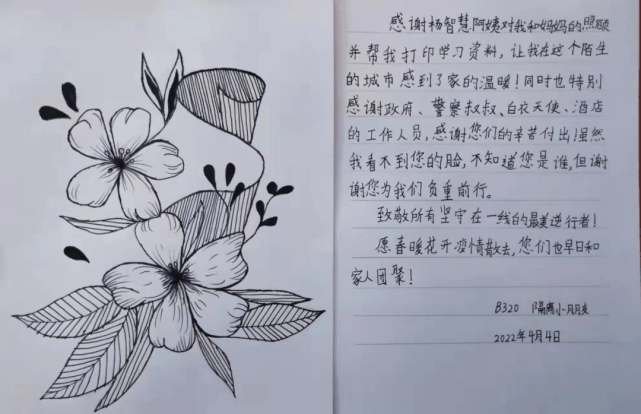 感谢杨智慧阿姨对我和妈妈的照顾
并帮我打印学习资料，让我在这个陌生
的城市感到了家的温暖！同时也特别
感谢政府、警察叔叔、白衣天使、酒店
的工作人员，感谢您们的辛苦付出！虽然
我看不到您的脸，不知道您是谁，但谢
谢您为我们负重前行。
致敬所有坚守在一线的最美逆行者！
愿春暖花开疫情散去，您们也早日和
家人团聚！
B320 隔离小朋友
2022年4月4日